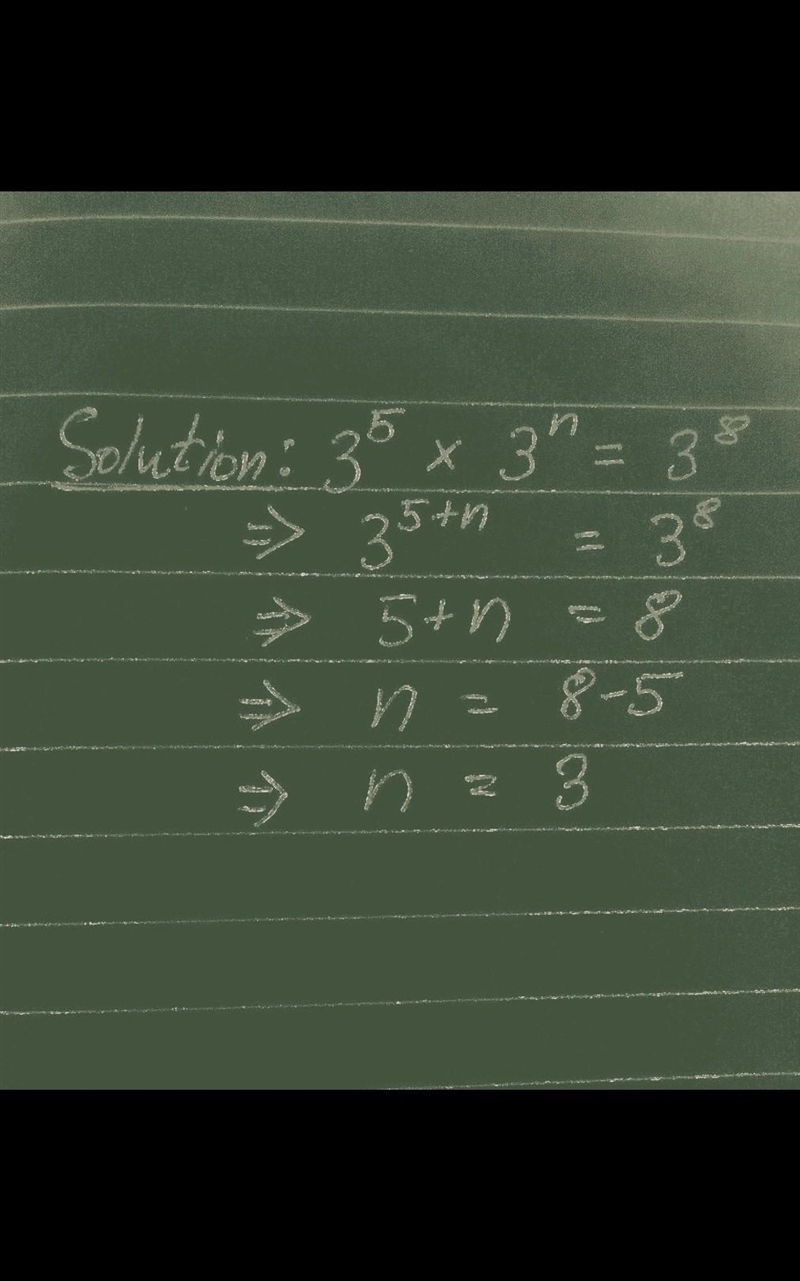 Solution: 3⁵ × 3ⁿ = 3⁸
⇒ 3⁵⁺ⁿ = 3⁸
⇒ 5+n = 8
⇒ n = 8-5
⇒ n = 3